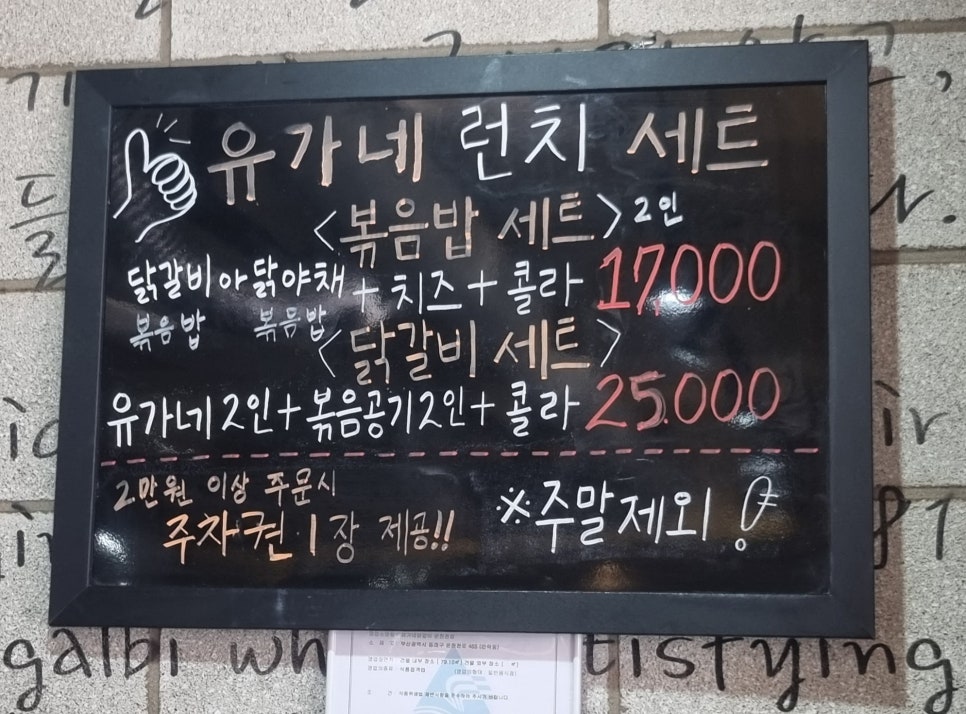 유가네 런치 세트
<볶음밥 세트> 2인
닭갈비아닭야채 + 치즈 + 콜라 17,000
볶음밥 볶음밥
<닭갈비 세트>
유가네 2인 + 볶음공기 2인 + 콜라 25.000
2만원 이상 주문시
주차권 1장 제공!!
※주말제외!
galbi wh tistying